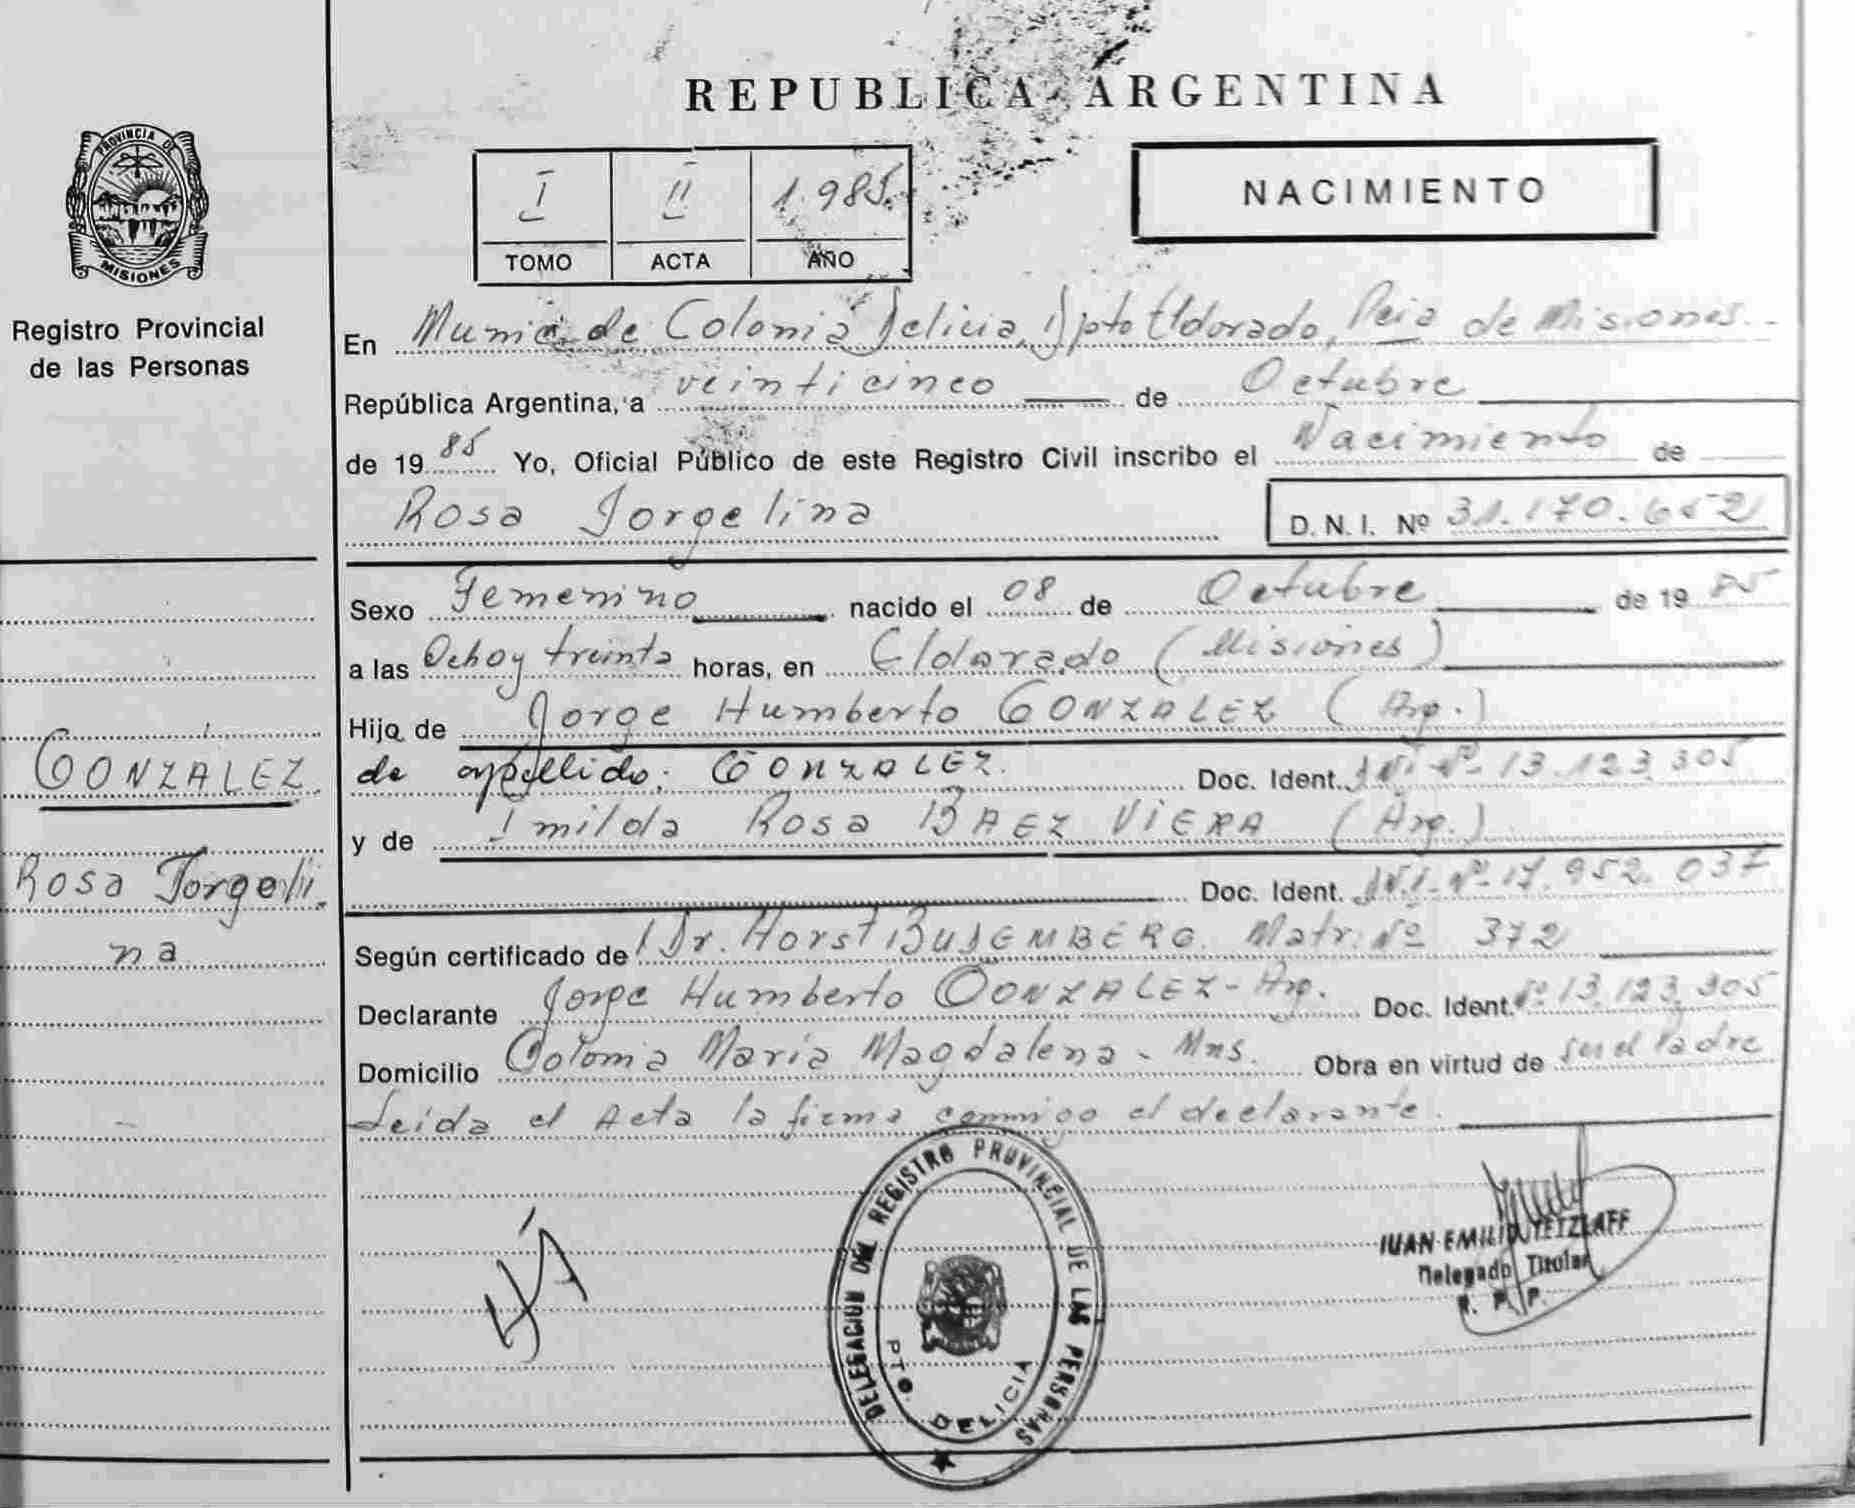 REPUBLICA ARGENTINA
PROVINCIA DE
MISIONES
Registro Provincial
de las Personas
I II 1.985.
TOMO ACTA AÑO
NACIMIENTO
En Munic. de Colonia Delicia, Dpto Eldorado, Pcia de Misiones.-
República Argentina, a veinticinco de Octubre
de 1985 Yo, Oficial Público de este Registro Civil inscribo el Nacimiento de
Rosa Jorgelina D.N.I. Nº 31.170.652
Sexo Femenino nacido el 08 de Octubre de 1985
a las Ocho y treinta horas, en Eldorado (Misiones)
Hija de Jorge Humberto GONZALEZ (Arg.)
de apellido: GONZALEZ. Doc. Ident. DNI Nº 13.123.305
y de Imilda Rosa BAEZ VIERA (Arg.)
Doc. Ident. DN.I. Nº 17.952.037
Según certificado de Dr. Horst BUSEMBERG. Matr. Nº 372
Declarante Jorge Humberto GONZALEZ - Arg. Doc. Ident. Nº 13.123.305
Domicilio Colonia María Magdalena - Mns. Obra en virtud de ser el Padre
Leida el Acta la firma conmigo el declarante.
GONZÁLEZ
Rosa Jorgeli
na
DELEGACION DEL REGISTRO PROVINCIAL DE LAS PERSONAS
PTO. DELICIA
JUAN EMILIO TETZLAFF
Delegado Titular
R. P. P.